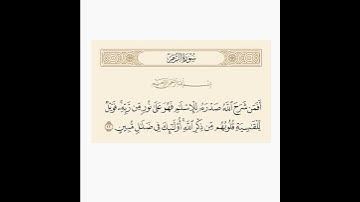 سُورَةُ الزُّمَرِ
بِسْمِ اللَّهِ الرَّحْمَٰنِ الرَّحِيمِ
أَفَمَن شَرَحَ اللَّهُ صَدْرَهُۥ لِلْإِسْلَٰمِ فَهُوَ عَلَىٰ نُورٍ مِّن رَّبِّهِۦ ۚ فَوَيْلٌ
لِّلْقَٰسِيَةِ قُلُوبُهُم مِّن ذِكْرِ اللَّهِ ۚ أُو۟لَٰٓئِكَ فِى ضَلَٰلٍ مُّبِينٍ ٢٢